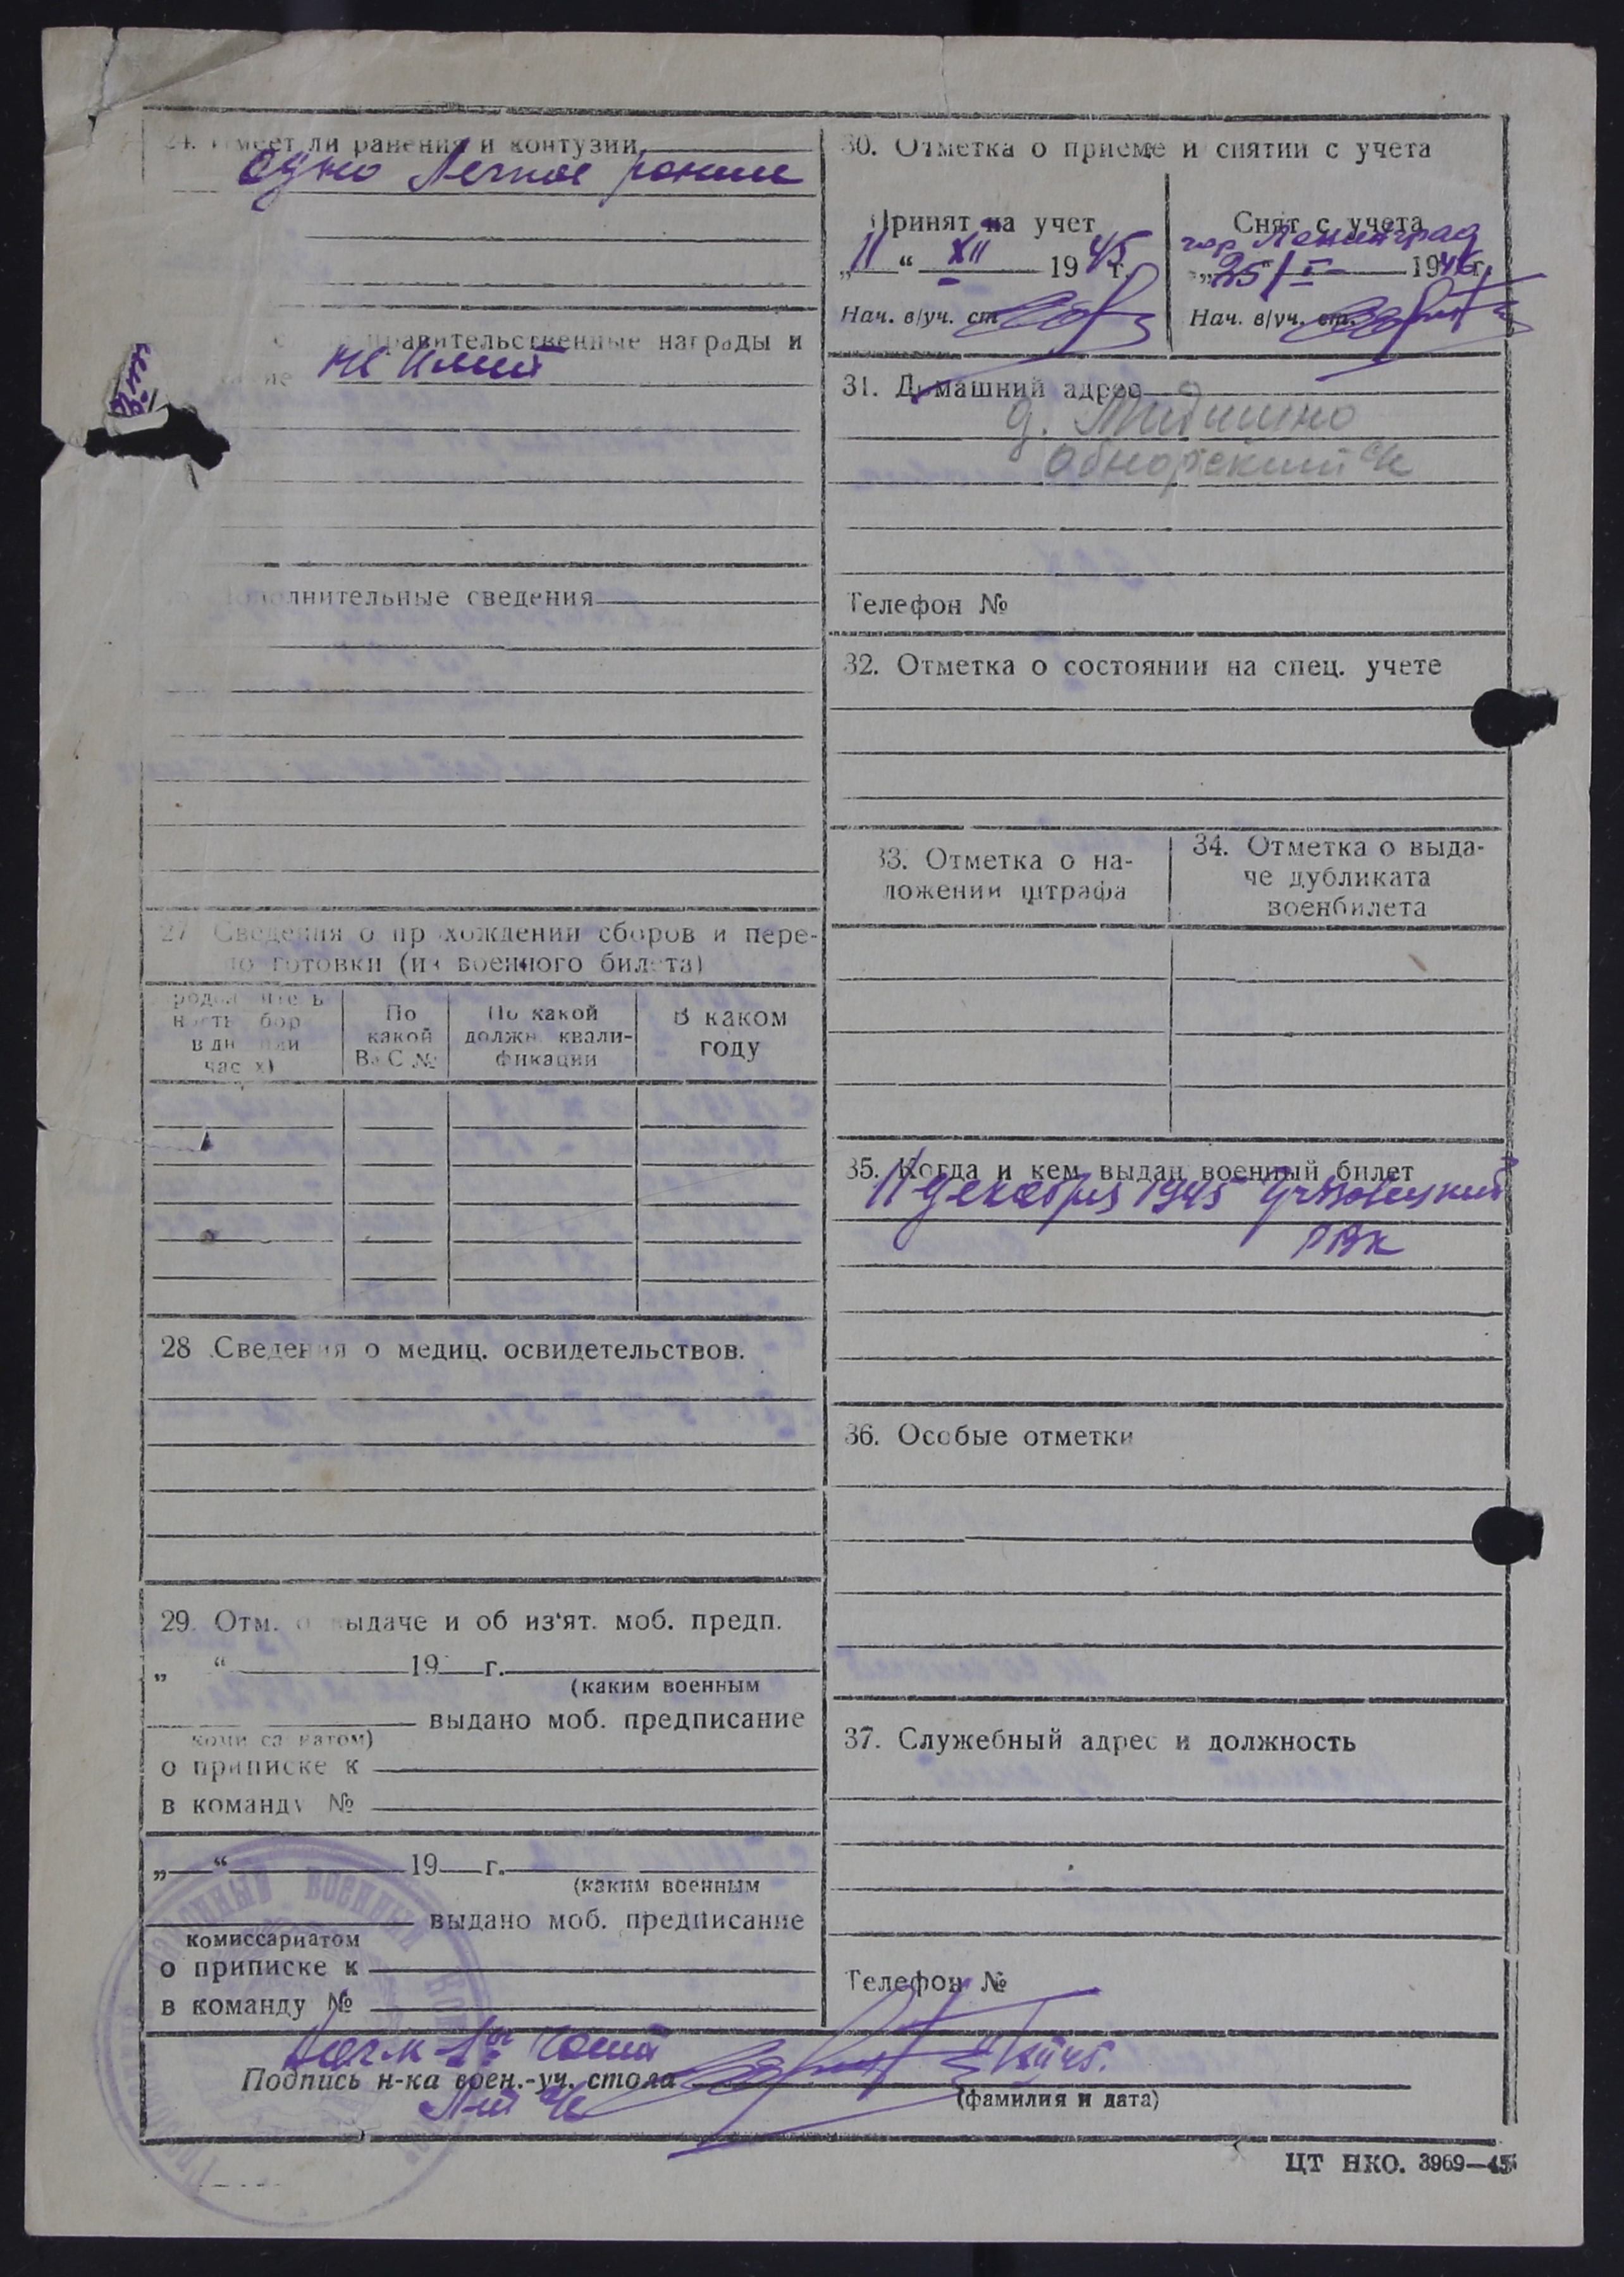 24. Имеет ли ранения и контузии
одно легкое ранение
правительственные награды и
не имеет
Дополнительные сведения
27 Сведения о прохождении сборов и пере-
подготовки (из военного билета)
По какой ВуС №
По какой должн. квали-
фикации
В каком
году
28 Сведения о медиц. освидетельствов.
29. Отм. о выдаче и об из‘ят. моб. предп.
„ “ 19 г.
(каким военным
выдано моб. предписание
комиссариатом)
о приписке к
в команду №
„ “ 19 г.
(каким военным
выдано моб. предписание
комиссариатом
о приписке к
в команду №
30. Отметка о приеме и снятии с учета
Принят на учет
„11“ XII 1945 г.
Нач. в/уч. ст.
Снят с учета
гор Ленинград
„25“ I 1946 г.
Нач. в/уч. ст.
31. Домашний адрес
д.
Обнорский с/с
Телефон №
32. Отметка о состоянии на спец. учете
33. Отметка о на-
ложении штрафа
34. Отметка о выда-
че дубликата
военбилета
35. Когда и кем выдан военный билет
11 декабря 1945
РВК
36. Особые отметки
37. Служебный адрес и должность
Телефон №
Нач-к 1ой части
Подпись н-ка воен.-уч. стола
(фамилия и дата)
ЦТ НКО. 3969—45